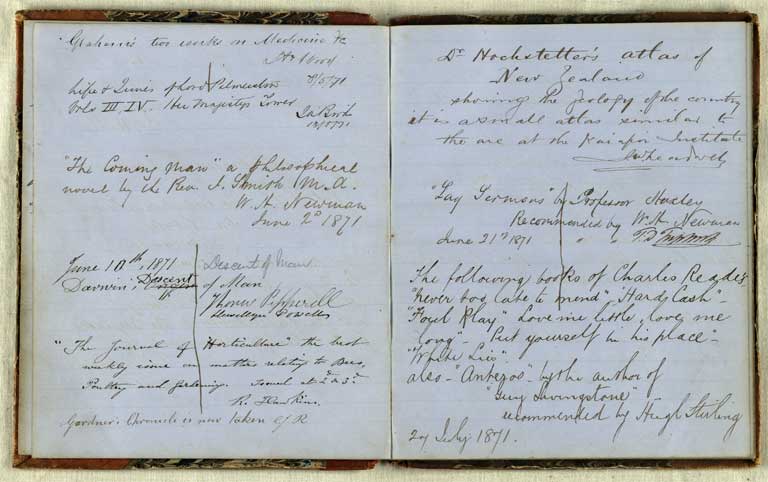 Graham's two works on Medicine &c
Wood
8/5/71
Life & Times of Lord Palmerston
Vols III, IV. Her Majestys Tower
"The Coming Man" a philosophical
novel by the Rev. J. Smith M.A.
W. A. Newman
June 2d 1871
June 10th, 1871 Descent of Man
Darwin's Descent of Man
Thomas Pepperell
Llewellyn Powell
"The Journal of Horticulture" the best
weekly issue on matters relating to Bees,
Poultry and gardening. Issued at 2d & 3d.
R. Hawkins.
Gardner's Chronicle is now taken
Dr Hochstetter's atlas of
New Zealand
showing the Geology of the country
it is a small atlas similar to
the one at the Kaiapoi Institute
"Lay Sermons" by Professor Huxley
Recommended by W. A. Newman
June 21st 1871 " "
The following books of Charles Reade's
"Never too late to mend" "Hard Cash" -
"Foul Play" "Love me little, love me
long" - "Put yourself in his place" -
"White Lies" -
also - "Anteros" - by the author of
"Guy Livingstone"
recommended by Hugh Stirling
29 July 1871.